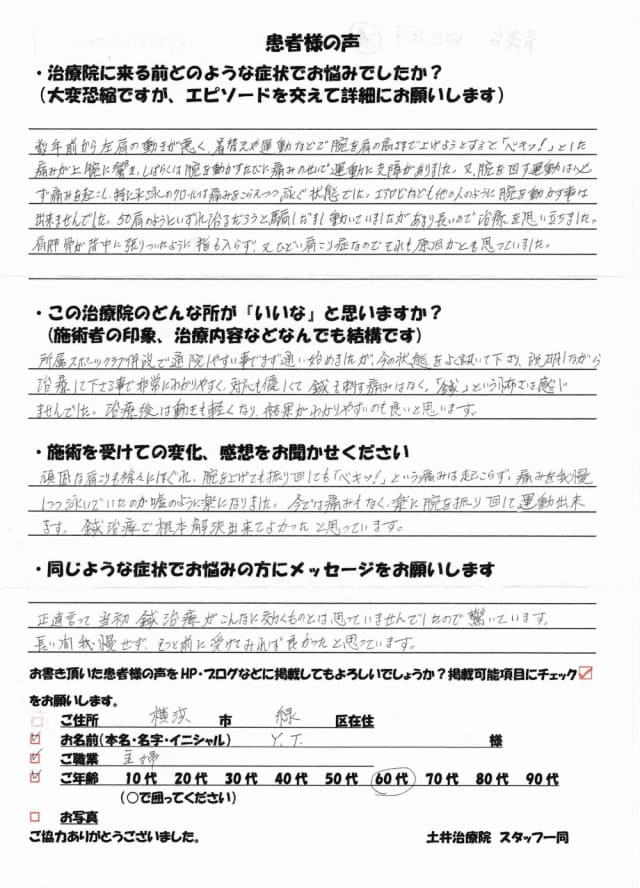 患者様の声
・治療院に来る前どのような症状でお悩みでしたか？
（大変恐縮ですが、エピソードを交えて詳細にお願いします）
数年前から左肩の動きが悪く、着替えや運動などで腕を肩の高さまで上げようとすると「ベキッ！」とした
痛みが上腕に響き、しばらくは腕を動かすたびに痛みのせいで運動に支障がありました。又、腕を回す運動は必
ず痛みを起こし、特に水泳のクロールは痛みをこらえつつ泳ぐ状態でした。エアロビなども他の人のように腕を動かす事は
出来ませんでした。50肩のようにいずれ治るだろうと騙しだまし動いていましたがあまり長いので治療を思い立ちました。
肩胛骨が背中に張りついたように指も入らず、又ひどい肩こり症なのでそれも原因かとも思っていました。
・この治療院のどんな所が『いいな』と思いますか？
（施術者の印象、治療内容などなんでも結構です）
所属スポーツクラブ併設で通院しやすい事でまず通い始めましたが、今の状態をよく訊いて下さり、説明しながら
治療して下さる事で非常にわかりやすく、対応も優しくて鍼も刺す痛みはなく、「鍼」という怖さは感じ
ませんでした。治療後は動きも軽くなり、結果がわかりやすいのも良いと思います。
・施術を受けての変化、感想をお聞かせください
頑固な肩こりも徐々にほぐれ、腕を上げても振り回しても「ベキッ！」という痛みは起こらず、痛みを我慢
しつつ泳いでいたのが嘘のように楽になりました。今では痛みもなく、楽に腕を振り回して運動出来
ます。鍼治療で根本解決出来てよかったと思っています。
・同じような症状でお悩みの方にメッセージをお願いします
正直言って当初鍼治療がこんなに効くものとは思っていませんでしたので驚いています。
長い間我慢せず、もっと前に受けてみれば良かったと思っています。
お書き頂いた患者様の声をHP・ブログなどに掲載してもよろしいでしょうか？掲載可能項目にチェック☑
をお願いします。
□ ご住所 横浜 市 緑 区在住
☑ お名前（本名・名字・イニシャル） Y.T. 様
☑ ご職業 主婦
☑ ご年齢 10代 20代 30代 40代 50代 60代 70代 80代 90代
（〇で囲ってください）
□ お写真
ご協力ありがとうございました。 土井治療院 スタッフ一同